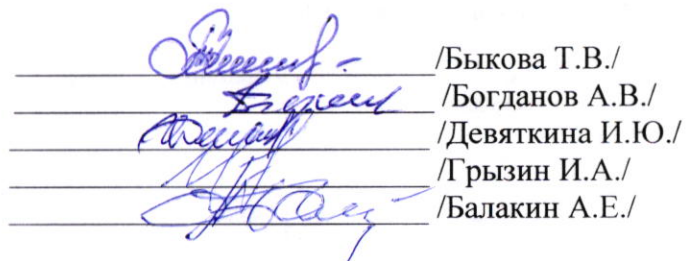 /Быкова Т.В./
/Богданов А.В./
/Девяткина И.Ю./
/Грызин И.А./
/Балакин А.Е./